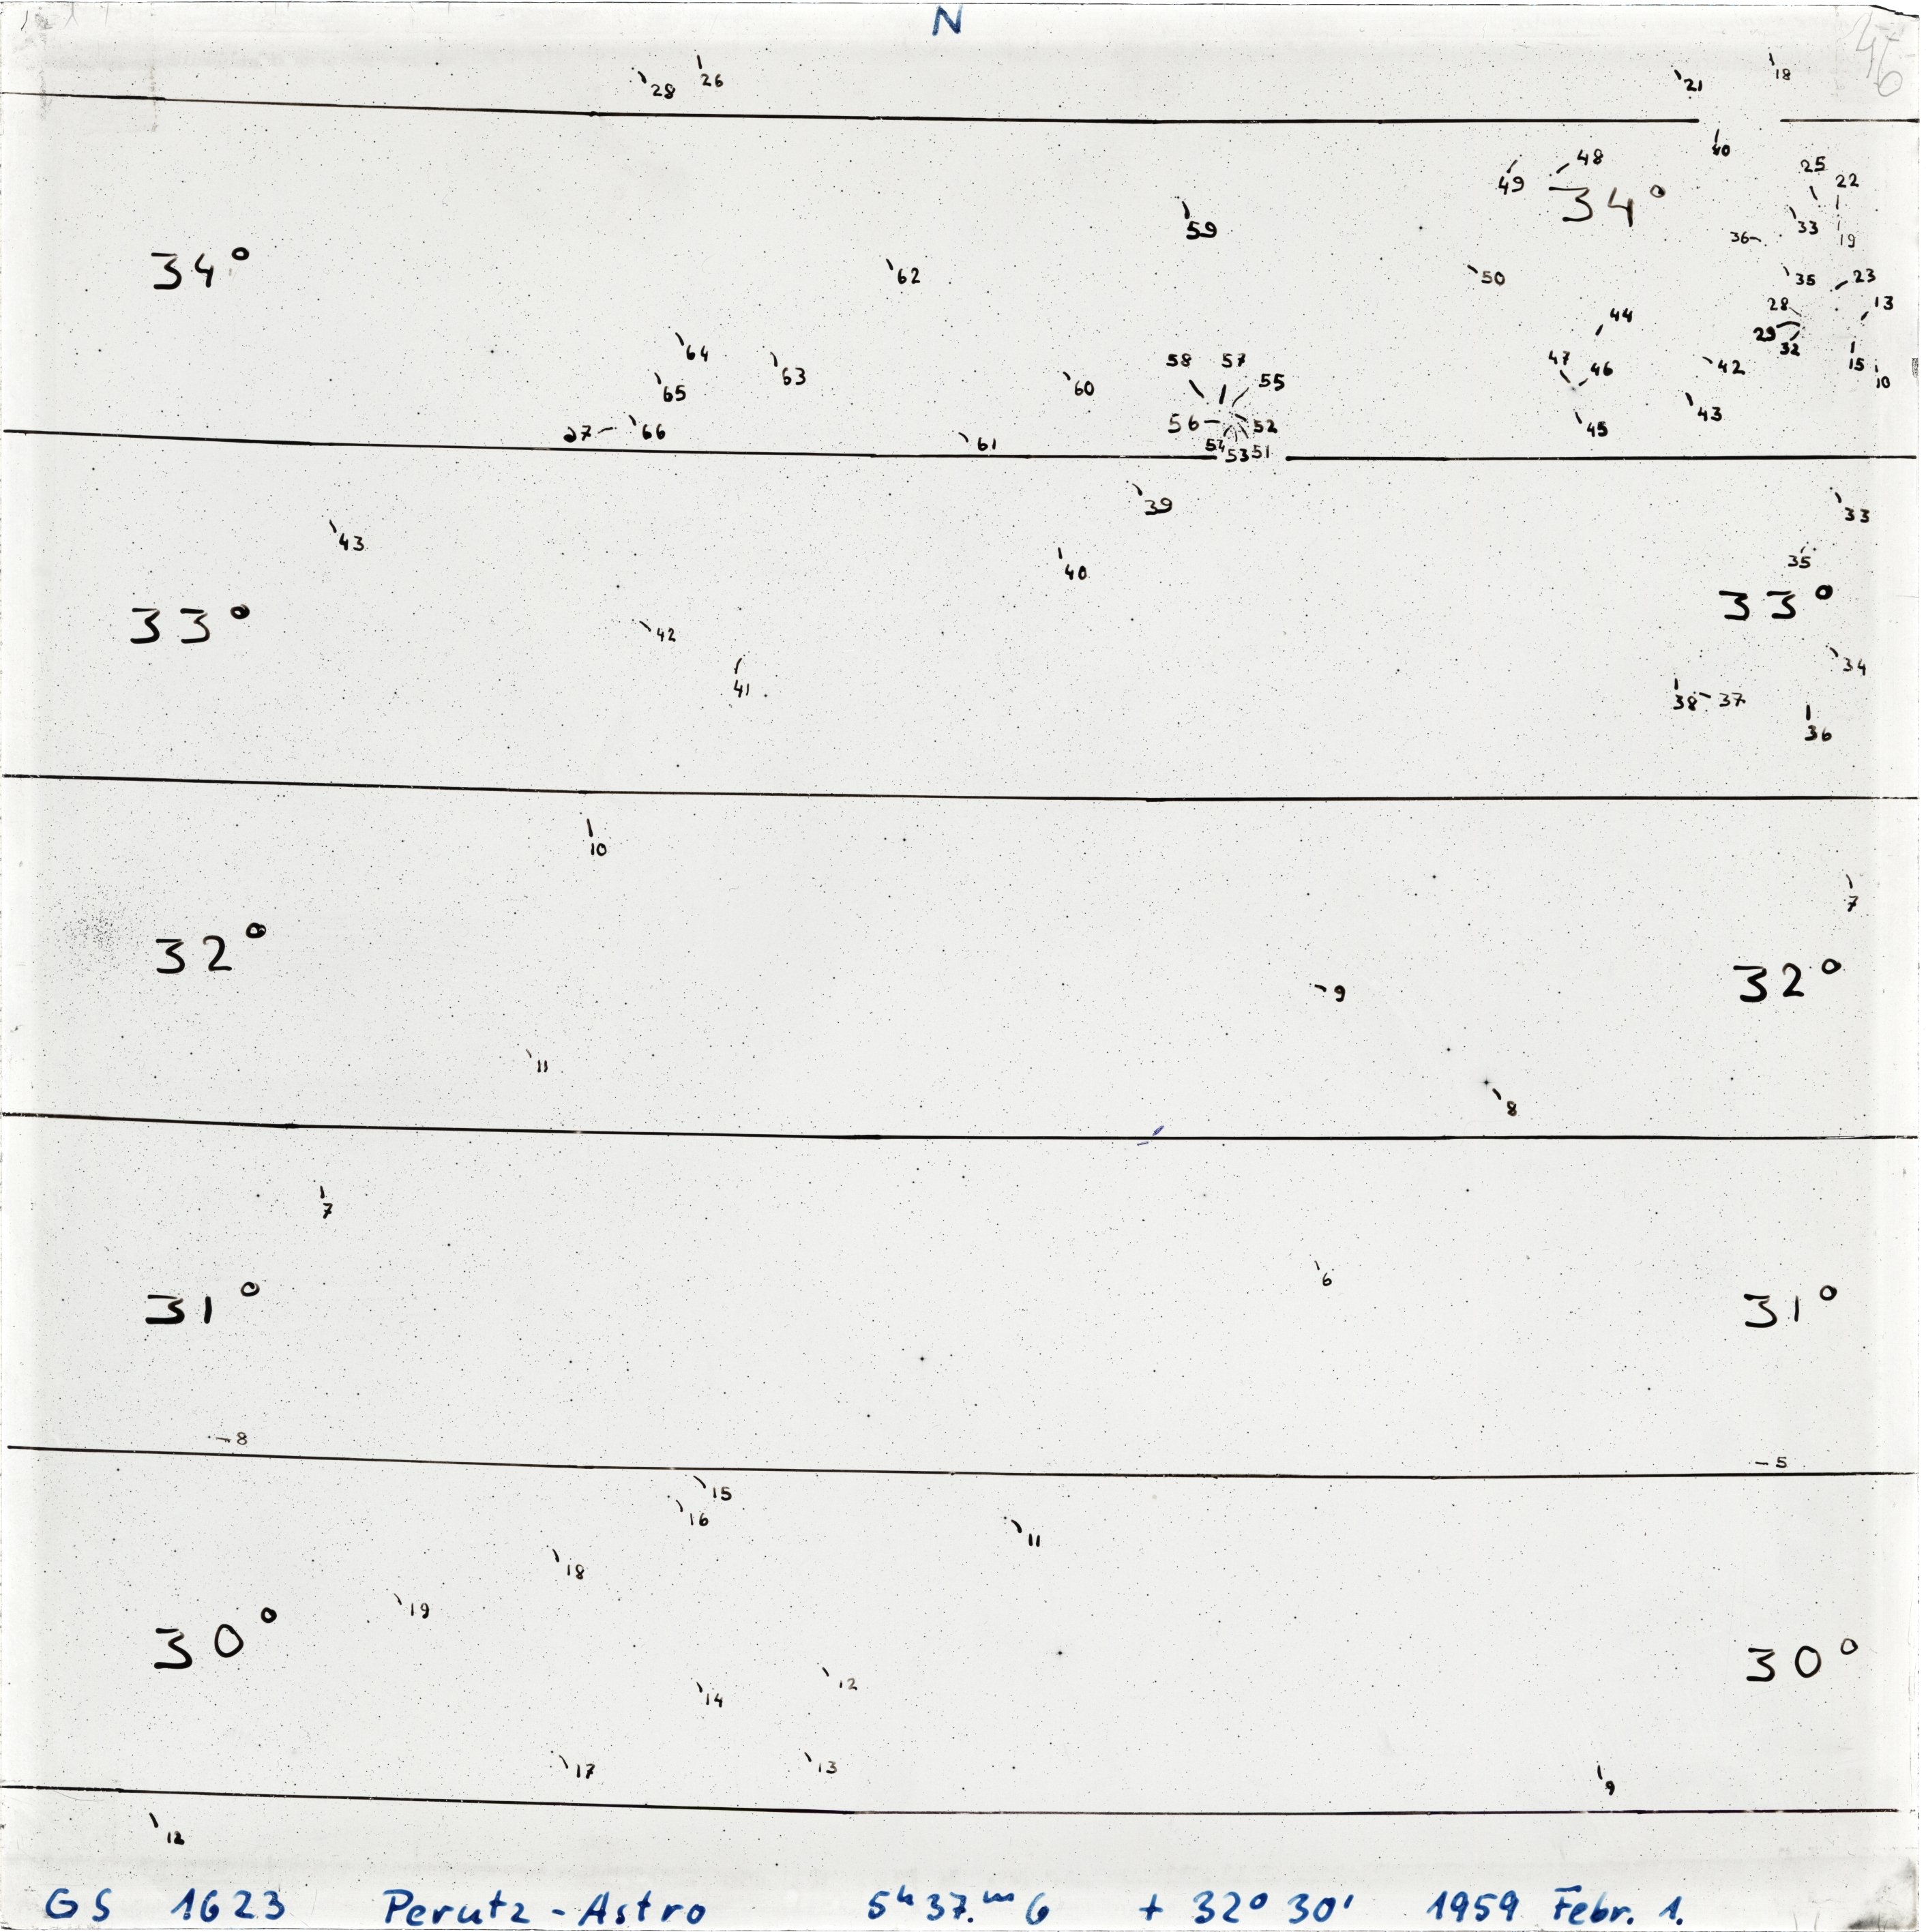 N
46
28 26 21 18
40
49 48 34° 25 22
59 36 33 19
34° 62 50 35 23
44 28 13
64 63 58 57 55 47 46 29 32 42 15 10
65 60 43
66 56 52 45
61 54 53 51
39 33
43 40 35
33° 33°
42 34
41 38 37 36
10
7
32° 32°
9
11
8
7
6
31° 31°
8 5
15
16 11
18
19
30° 30°
14 12
17 13 9
12
GS 1623 Perutz-Astro 5h 37.m 6 + 32° 30' 1959 Febr. 1.